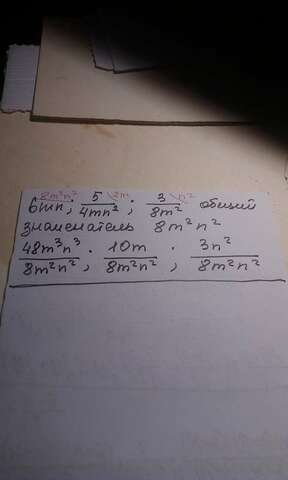 8m²n² \2m \n²
6mn; 5/4mn²; 3/8m² общий
знаменатель 8m²n²
48m³n³/8m²n²; 10m/8m²n²; 3n²/8m²n²